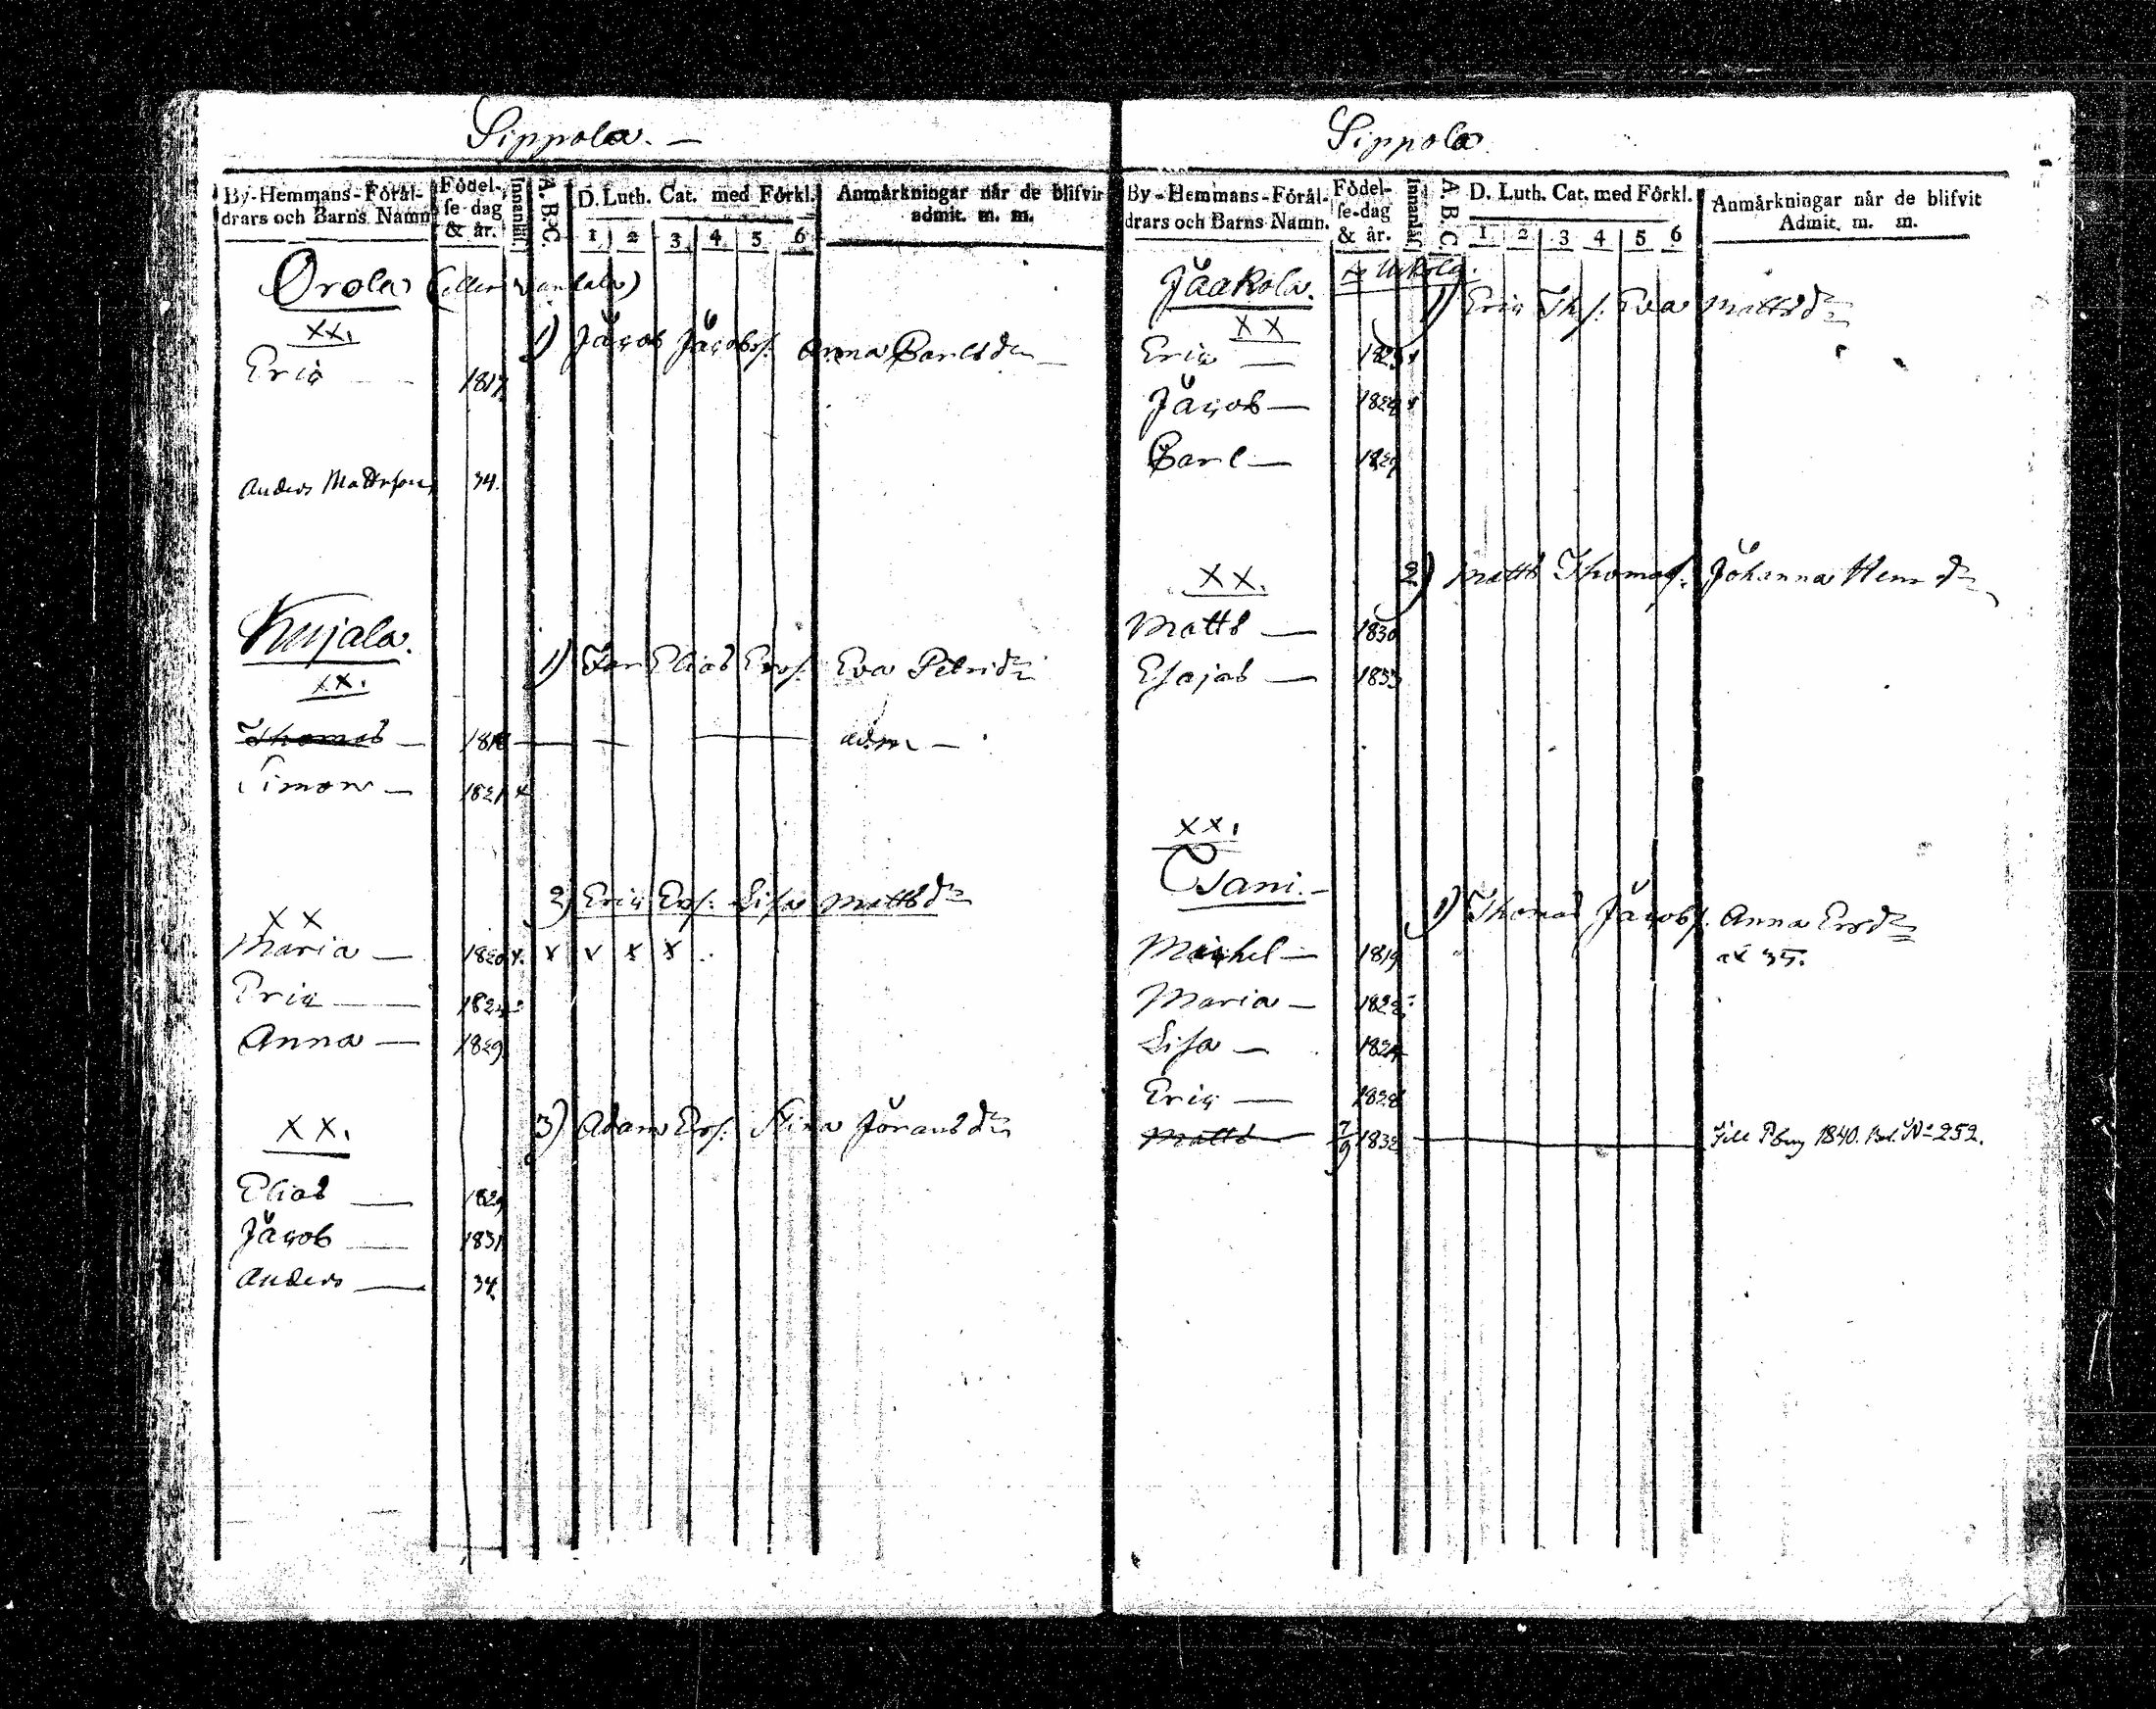 Sippola. —
By-Hemmans-Föräl-
drars och Barns Namn
Födel-
se-dag
& år.
Innanläs.
A. B. C.
D. Luth. Cat. med Förkl.
1 2 3 4 5 6
Anmärkningar når de blifvit
admit. m. m.
Orola (eller
XX.
1) Jacob Jacobs. Anna Carlsdr
Eric — 1817
Anders Mattsson 34.
Kujala.
XX.
1) Elias Ers. Eva Petridr
Thomas — 1818 adm —
Simon — 1821 x
2) Eric Ers. Lisa Mattsdr
XX
Maria — 1820 x. x v x x
Eric — 182
Anna — 1829
3) Adam Ers. Stina Göransdr
XX.
Elias — 1829
Jacob — 1831
Anders — 34
Sippola.
By-Hemmans-Förål-
drars och Barns Namn.
Födel-
se-dag
& år.
Innanläs.
A. B. C.
D. Luth. Cat. med Förkl.
1 2 3 4 5 6
Anmärkningar når de blifvit
Admit. m. m.
Jaakola.
1) Eric Ths. Eva Mattsdr
XX
Eric — 1825
Jacob — 1829
Carl — 1829
2) Matts Thomas. Johanna Hensdr
XX.
Matts — 1830
Esajas — 1833
XX.
Tsani. —
1) Thomas Jacobs. Anna Ersdr
Michel — 1819 35.
Maria — 1822
Lisa — 1824
Eric — 1828
Matts 7/9 1832 — Till Pbrg 1840. Bet. No 252.